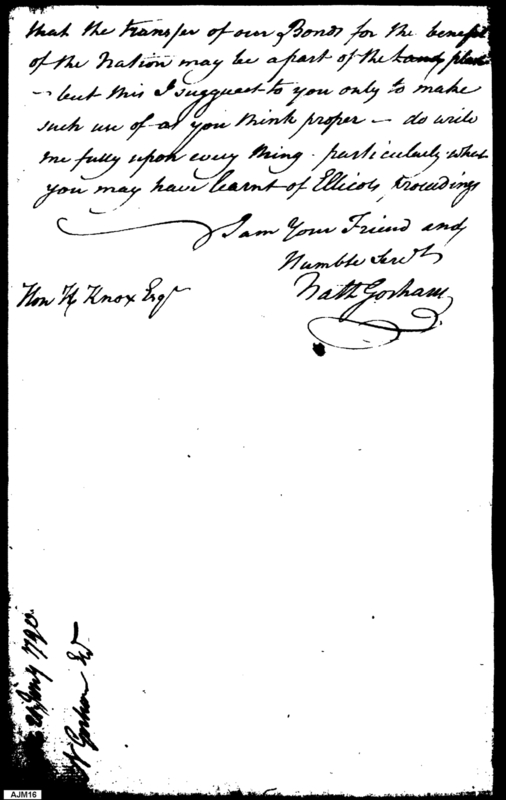 that the transfer of our Bonds for the benefit
of the Nation may be a part of the plan
— but this I sugguest to you only to make
such use of as you think proper — do write
me fully upon every thing. particularly what
you may have learnt of Ellicots proceedings
I am Your Friend and
Humble Servt
Nath Gorham
Hon H Knox Esqr
Jany 1790
N Gorham Esqr
AJM16